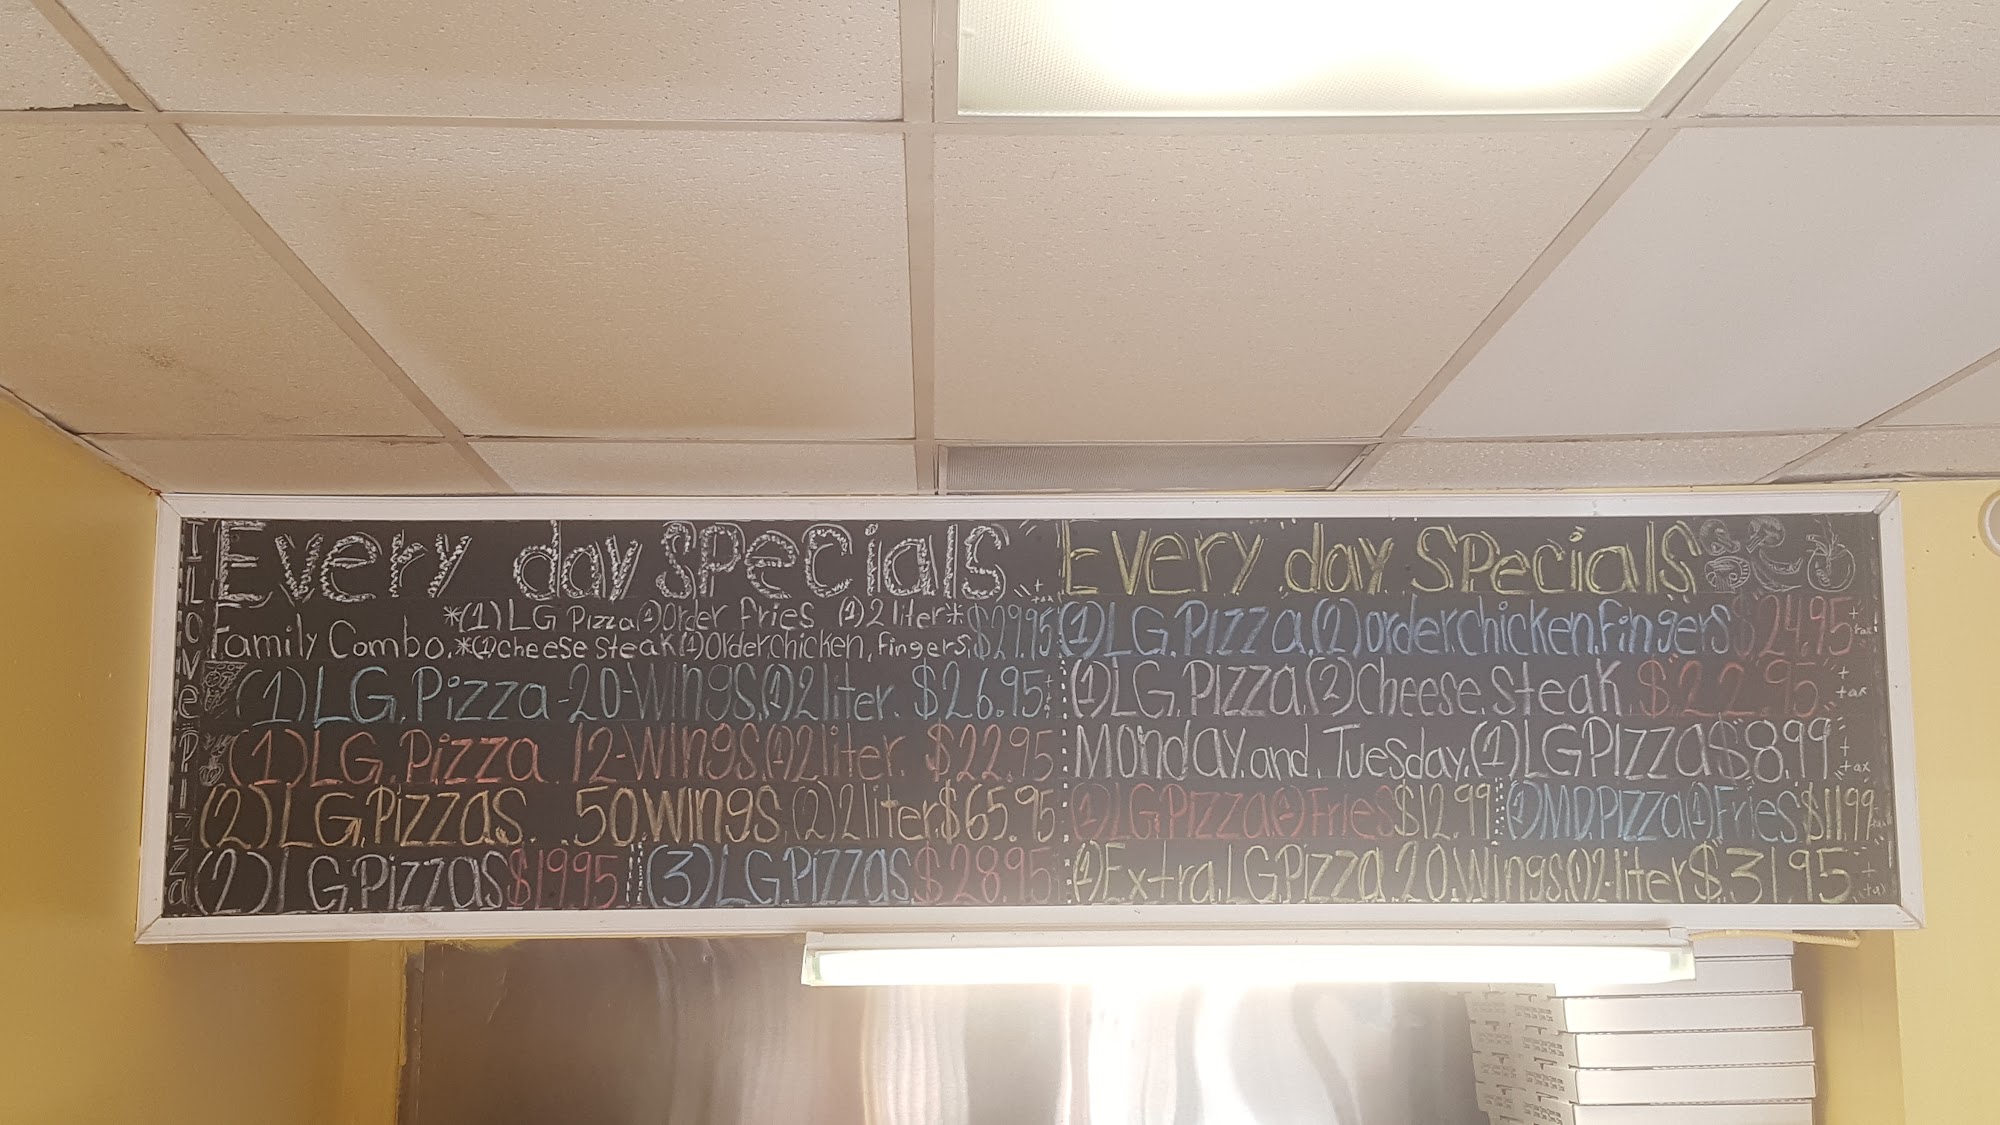 I Love Pizza
Every day specials
*(1) LG Pizza (1) Order fries (1) 2 liter*
Family Combo. *(1) cheese steak (1) order chicken, fingers. $29.95 + tax
(1) LG. Pizza - 20-Wings, (1) 2 liter. $26.95
(1) LG. Pizza 12-Wings, (1) 2 liter. $22.95
(2) LG. Pizzas. 50. Wings, (2) 2 liter $65.95
(2) LG. Pizzas $19.95 (3) LG. Pizzas $28.95
Every day specials
(1) LG. Pizza, (2) order chicken, fingers $24.95 + tax
(1) LG. Pizza, (2) cheese. steak. $22.95 + tax
Monday. and. Tuesday, (1) LG Pizza $8.99 + tax
(1) LG Pizza (1) Fries $12.99 (1) MD Pizza (1) Fries $11.99
(1) Extra. LG Pizza 20. Wings, (1) 2-liter $31.95 + tax